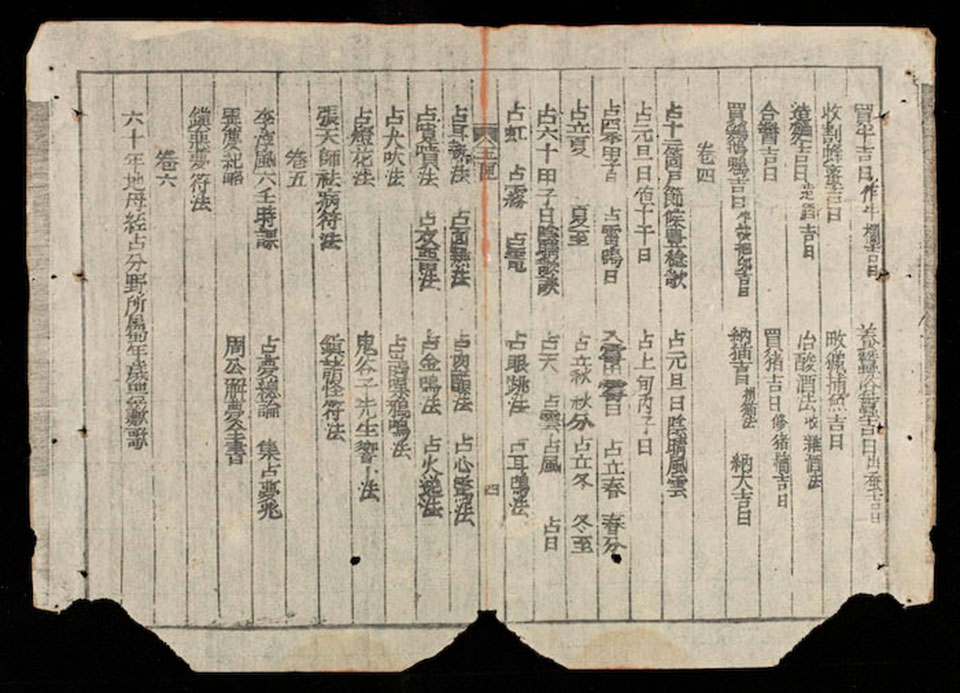 買牛吉日 作牛欄吉日 養蠶浴蠶吉日 出蚕吉日
收割蜂蜜吉日 畋獵捕魚吉日
造麯吉日 造酒吉日 治酸酒法 收雜酒法
合醬吉日 買猪吉日 修猪欄吉日
買鷄鵝鴨吉日 納猫吉日 相猫法 納犬吉日
卷四
占十二箇月節候豐稔歌 占元旦日陰晴風雲
占元旦日值十干日 占上旬丙子日
占四季甲子日 占雷鳴日 占立春 春分
占立夏 夏至 占立秋 秋分 占立冬 冬至
占六十甲子日陰晴歌訣 占天 占雲 占風 占日
占虹 占霧 占電 占眼跳法 占耳鳴法
四
占耳熱法 占面熱法 占肉顫法 占心驚法
占嚏噴法 占衣留法 占金鳴法 占火逸法
占犬吠法 占鴉鳴法
占燈花法 鬼谷子先生響卜法
張天師祛病符法 鎮怪符法
卷五
李淳風六壬時課 占夢總論 集占夢兆
周公解夢全書
鎮惡夢符法
卷六
六十年地母經占分野所屬年歲豐歉歌